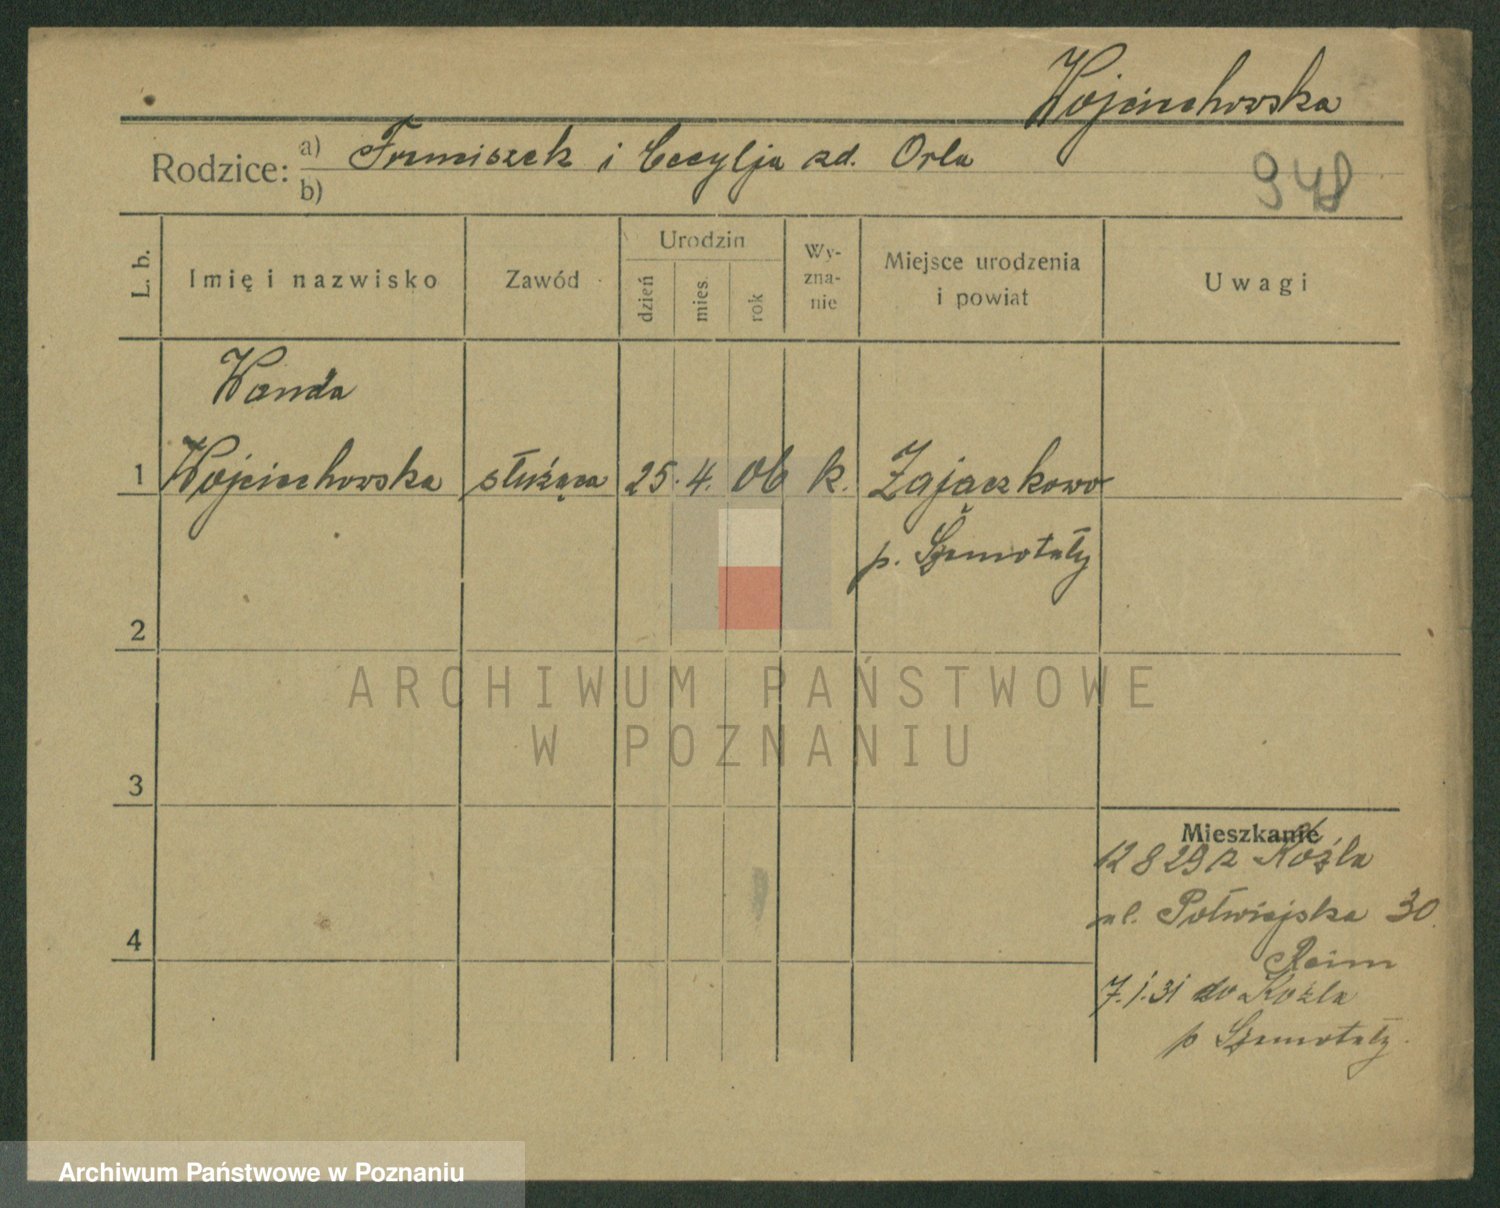 Wojciechowska
Rodzice: a) Franciszek i Cecylja zd. Orla
b)
948
L. b.
Imię i nazwisko
Zawód
Urodzin
dzień
mies.
rok
Wy-
zna-
nie
Miejsce urodzenia
i powiat
Uwagi
Wanda
1 Wojciechowska służąca 25. 4. 06 k. Zajączkowo
p. Szamotuły
2
ARCHIWUM PAŃSTWOWE
W POZNANIU
3
Mieszkanie
12 8 29 z Koźla
ul. Półwiejska 30.
4
Reim
7.1.31 do Koźla
p Szamotuły.
Archiwum Państwowe w Poznaniu